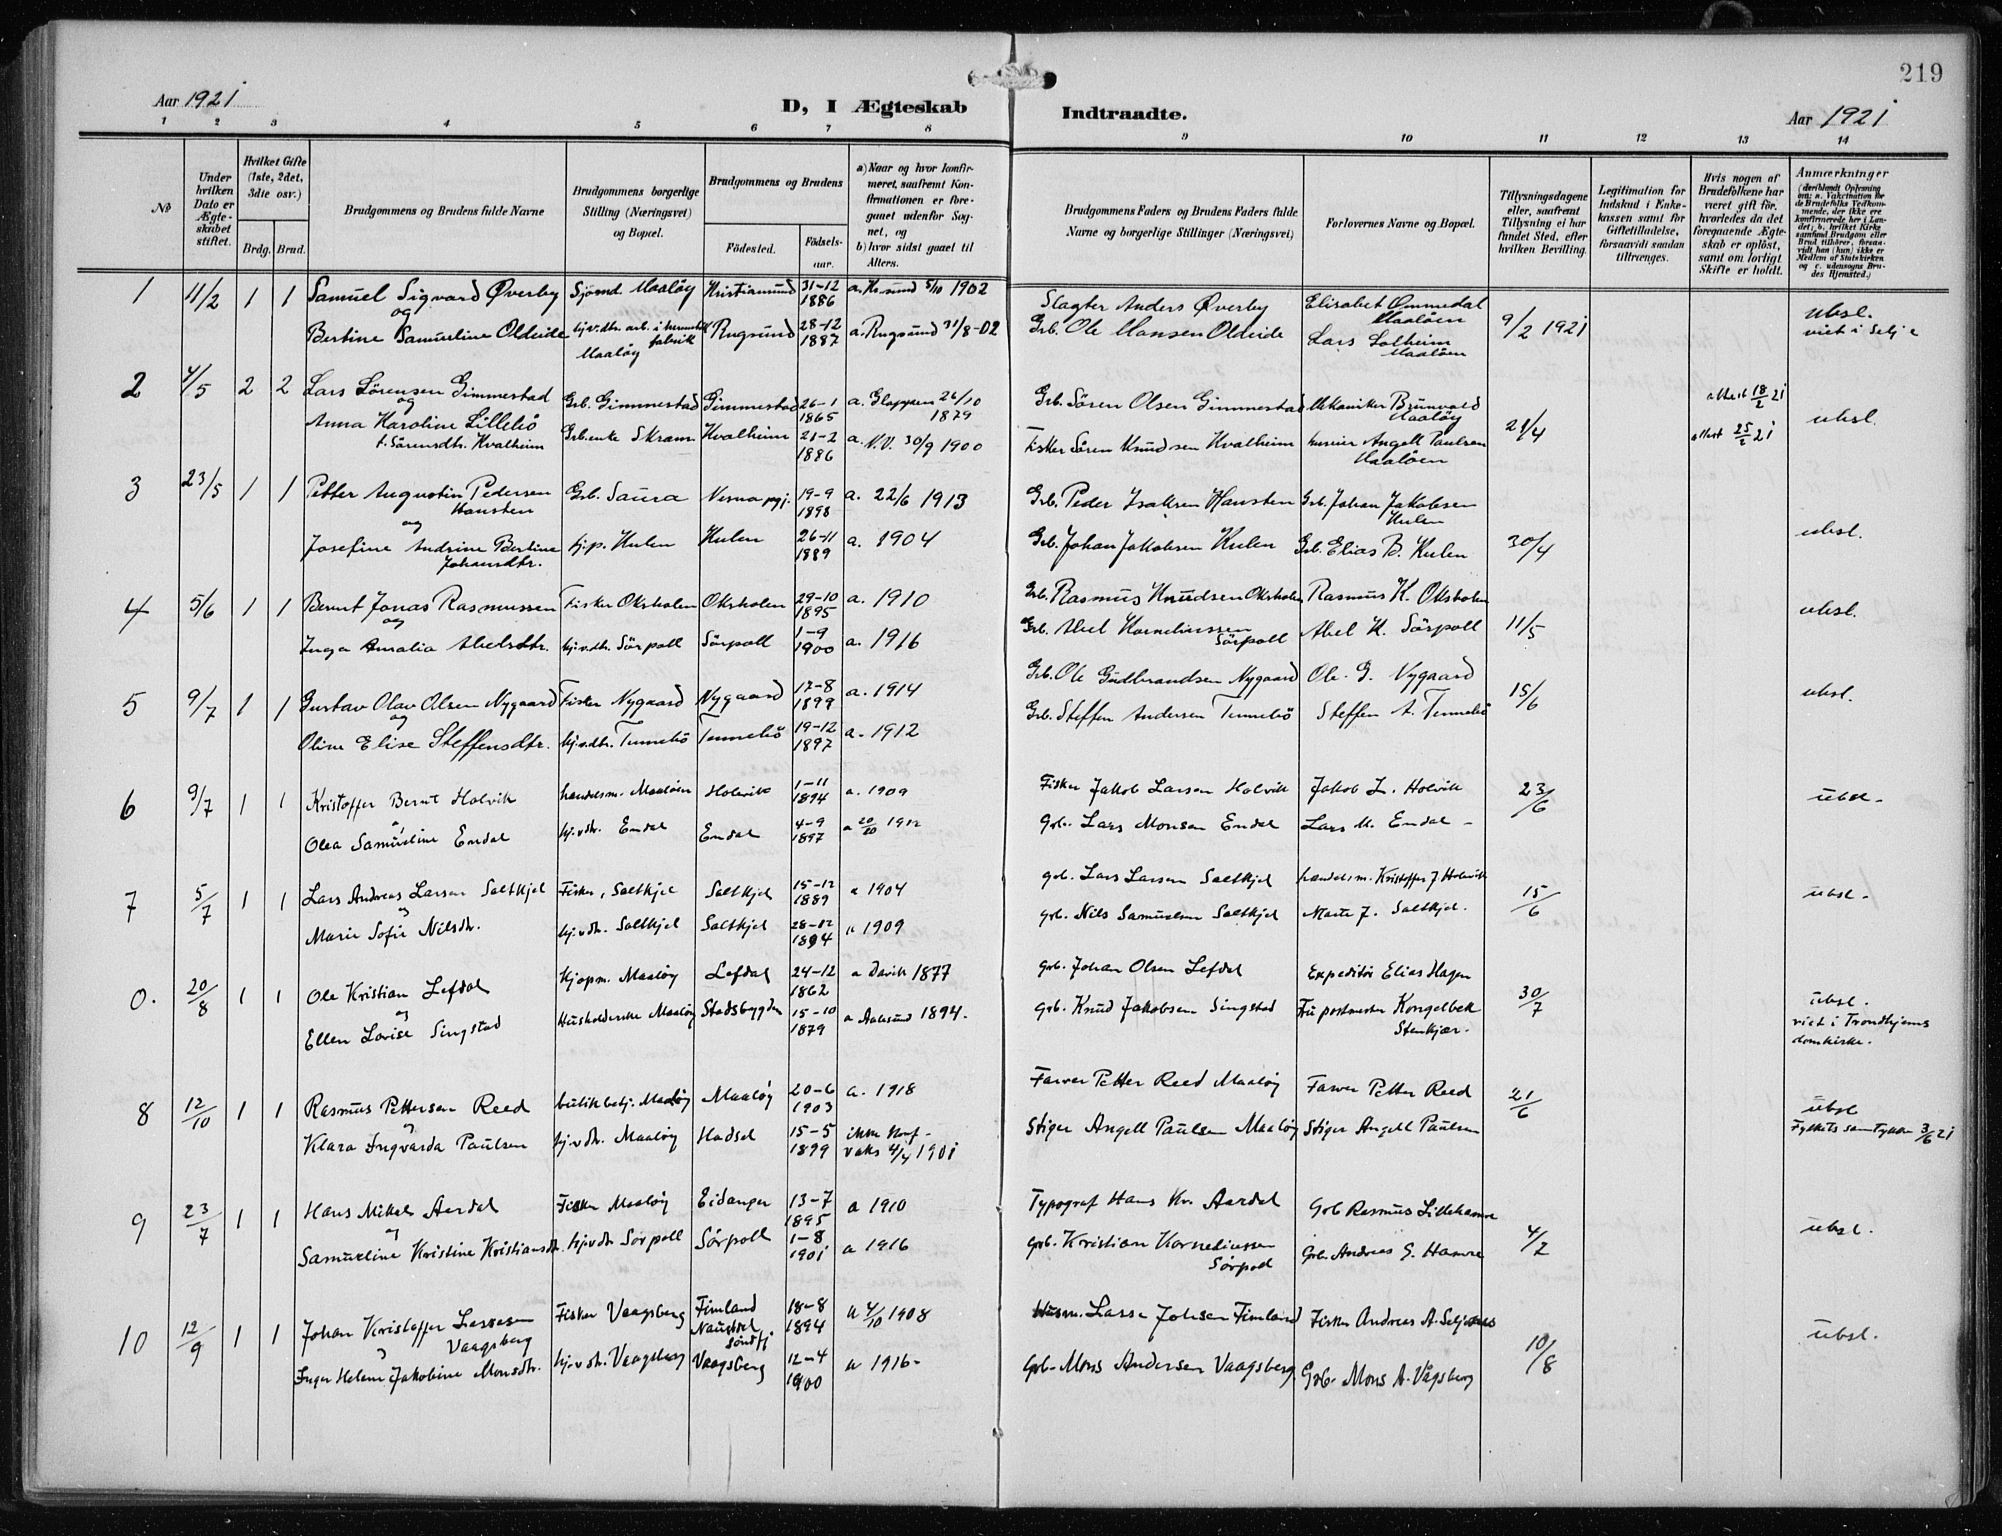 219
Aar 1921
D, I Ægteskab
Indtraadte.
Aar 1921
1 2 3 4 5 6 7 8 9 10 11 12 13 14
No
Under hvilken Dato er Ægteskabet stiftet.
Hvilket Gifte (1ste, 2det, 3die osv.)
Brdg. Brud.
Brudgommens og Brudens fulde Navne
Brudgommens borgerlige Stilling (Næringsvei) og Bopæl.
Brudgommens og Brudens
Födested.
Födselsaar.
a) Naar og hvor konfirmeret, saafremt Konfirmationen er foregaaet udenfor Sognet, og
b) hvor sidst gaaet til Alters.
Brudgommens Faders og Brudens Faders fulde Navne og borgerlige Stillinger (Næringsvei)
Forlovernes Navne og Bopæl.
Tillysningsdagene eller, saafremt Tillysning ei har fundet Sted, efter hvilken Bevilling.
Legitimation for Indskud i Enkekassen samt för Giftetilladelse, forsaavidt saadan tiltrænges.
Hvis nogen af Brudefolkene har været gift för, hvorledes da det foregaaende Ægteskab er oplöst, samt om lovligt Skifte er holdt.
Anmærkninger
(deriblandt Oplysning om: a. Vakcination for de Brudefolks Vedkommende, der ikke ere konfirmerede her i Landet; b. hvilket Kirkesamfund Brudgom eller Brud tilhörer, forsaavidt han (hun) ikke er Medlem af Statskirken og c. udensogns Brudes Hjemsted.)
1 11/2 1 1 Samuel Sigvard Överby Sjömd. Maalöy Kristiansund 31-12 1886 a. Kr.sund 5/10 1902 Slagter Anders Överby Elisabet Ommedal Maalöen 9/2 1921 ubsl.
og
Bertine Samueline Oldeide hjv.dtr. arb. i hermetikfabrik Maalöy Rugsund 28-12 1887 a. Rugsund 31/8-02 Grb. Ole Hansen Oldeide Lars Solheim Maalöen viet i Selje
2 4/5 2 2 Lars Sörensen Gimmestad Grb. Gimmestad Gimmestad 26-1 1865 a. Gloppen 26/10 1879 Grb. Sören Olsen Gimmestad Mekaniker Brunvold Maalöy 21/4 attest 18/2 21 ubsl.
og
Anna Karoline Lillebö f. Sörensdtr. Kvalheim Grb.enke Skram Kvalheim 21-2 1886 a. N.V. 30/9 1900 Fisker Sören Knudsen Kvalheim huseier Angell Paulsen Maalöen attest 25/2 21
3 23/5 1 1 Petter Augustin Pedersen Hansten Grb. Saura 19-9 1898 a. 22/6 1913 Grb. Peder Isaksen Hansten Grb. Johan Jakobsen Hulen 30/4 ubsl.
og
Josefine Andrine Bertine Johansdtr. hj.p. Hulen Hulen 26-11 1889 a. 1904 Grb. Johan Jakobsen Hulen Grb. Elias B. Hulen
4 5/6 1 1 Bernt Jonas Rasmussen Fisker Oksholen Oksholen 29-10 1895 a. 1910 Grb. Rasmus Knudsen Oksholen Rasmus K. Oksholen 11/5 ubsl.
og
Inga Amalia Abelsdtr. hjv.dtr. Sörpoll Sörpoll 1-9 1900 a. 1916 Grb. Abel Korneliussen Sörpoll Abel K. Sörpoll
5 9/7 1 1 Gustav Olav Olsen Nygaard Fisker Nygaard Nygaard 17-8 1899 a. 1914 Grb. Ole Gudbrandsen Nygaard Ole G. Nygaard 15/6 ubsl.
og
Oline Elise Steffensdtr. hjv.dtr. Tennebö Tennebö 19-12 1897 a. 1912 Grb. Steffen Andersen Tennebö Steffen A. Tennebö
6 9/7 1 1 Kristoffer Bernt Holvik handelsm. Maalöen Holevik 1-11 1894 a. 1909 Fisker Jakob Larsen Holvik Jakob L. Holvik 23/6 ubsl.
Olea Samueline Endal hjvdtr. Endal Endal 4-9 1897 a 20/10 1912 Grb. Lars Monsen Endal Lars M. Endal
7 5/7 1 1 Lars Andreas Larsen Saltkjel Fisker, Saltkjel Saltkjel 15-12 1889 a 1904 grb. Lars Larsen Saltkjel handelsm. Kristoffer J Holevik 15/6 ubsl.
Marie Sofie Nilsdtr. hjvdtr. Saltkjel Saltkjel 28-12 1894 a 1909 grb. Nils Samuelsen Saltkjel Saltkjel.
0. 20/8 1 1 Ole Kristian Lefdal Kjøpm. Maaløy Lefdal 24-12 1862 a Davik 1877 Grb. Johan Olsen Lefdal Expeditör Elias Hagen 30/7 ubsl.
og
Ellen Lovise Singstad Husholderske Maaløy Stadsbygden 15-10 1879 a Aalesund 1894. Grb. Knud Jakobsen Singstad Fru postmester Kongelbek Stenkjær. viet i Trondhjems domkirke.
8 12/10 1 1 Rasmus Pettersen Reed butikbetj. Maaløy Maaløy 20-6 1903 a. 1918 Farver Petter Reed Maaløy Farver Petter Reed 21/6 ubsl
Klara Ingvarda Paulsen hjvdtr. Maaløy Hadsel 15-5 1899 ikke konf. vaks 4/4 1901 Stiger Angell Paulsen Maaløy Stiger Angell Paulsen Fylkets samtykke 3/6 21
9 23/7 1 1 Hans Mikal Aardal Fisker Maaløy Eidanger 13-7 1895 a 1910 Typograf Hans Kr. Aardal Grb Rasmus Lillehamre 4/7 ubsl.
Samueline Kristine Kristiansdtr. hjvdtr Sørpoll Sørpoll 1-8 1901 a 1916 Grb. Kristian Korneliussen Sørpoll Grb. Andreas G. Hamre
10 12/9 1 1 Johan Kristoffer Larsen Vaagsberg Fisker Vaagsberg Fimland Naustdal Søndfj 18-8 1894 a 4/10 1908 Husm. Lasse Johsen Fimland Fisker Andreas A. 10/8 ubsl.
Inger Helene Jakobine Monsdtr. hjvdtr. Vaagsberg Vaagsberg 12-4 1900 a 1916 Grb. Mons Andersen Vaagsberg Grb. Mons A. Vågsberg